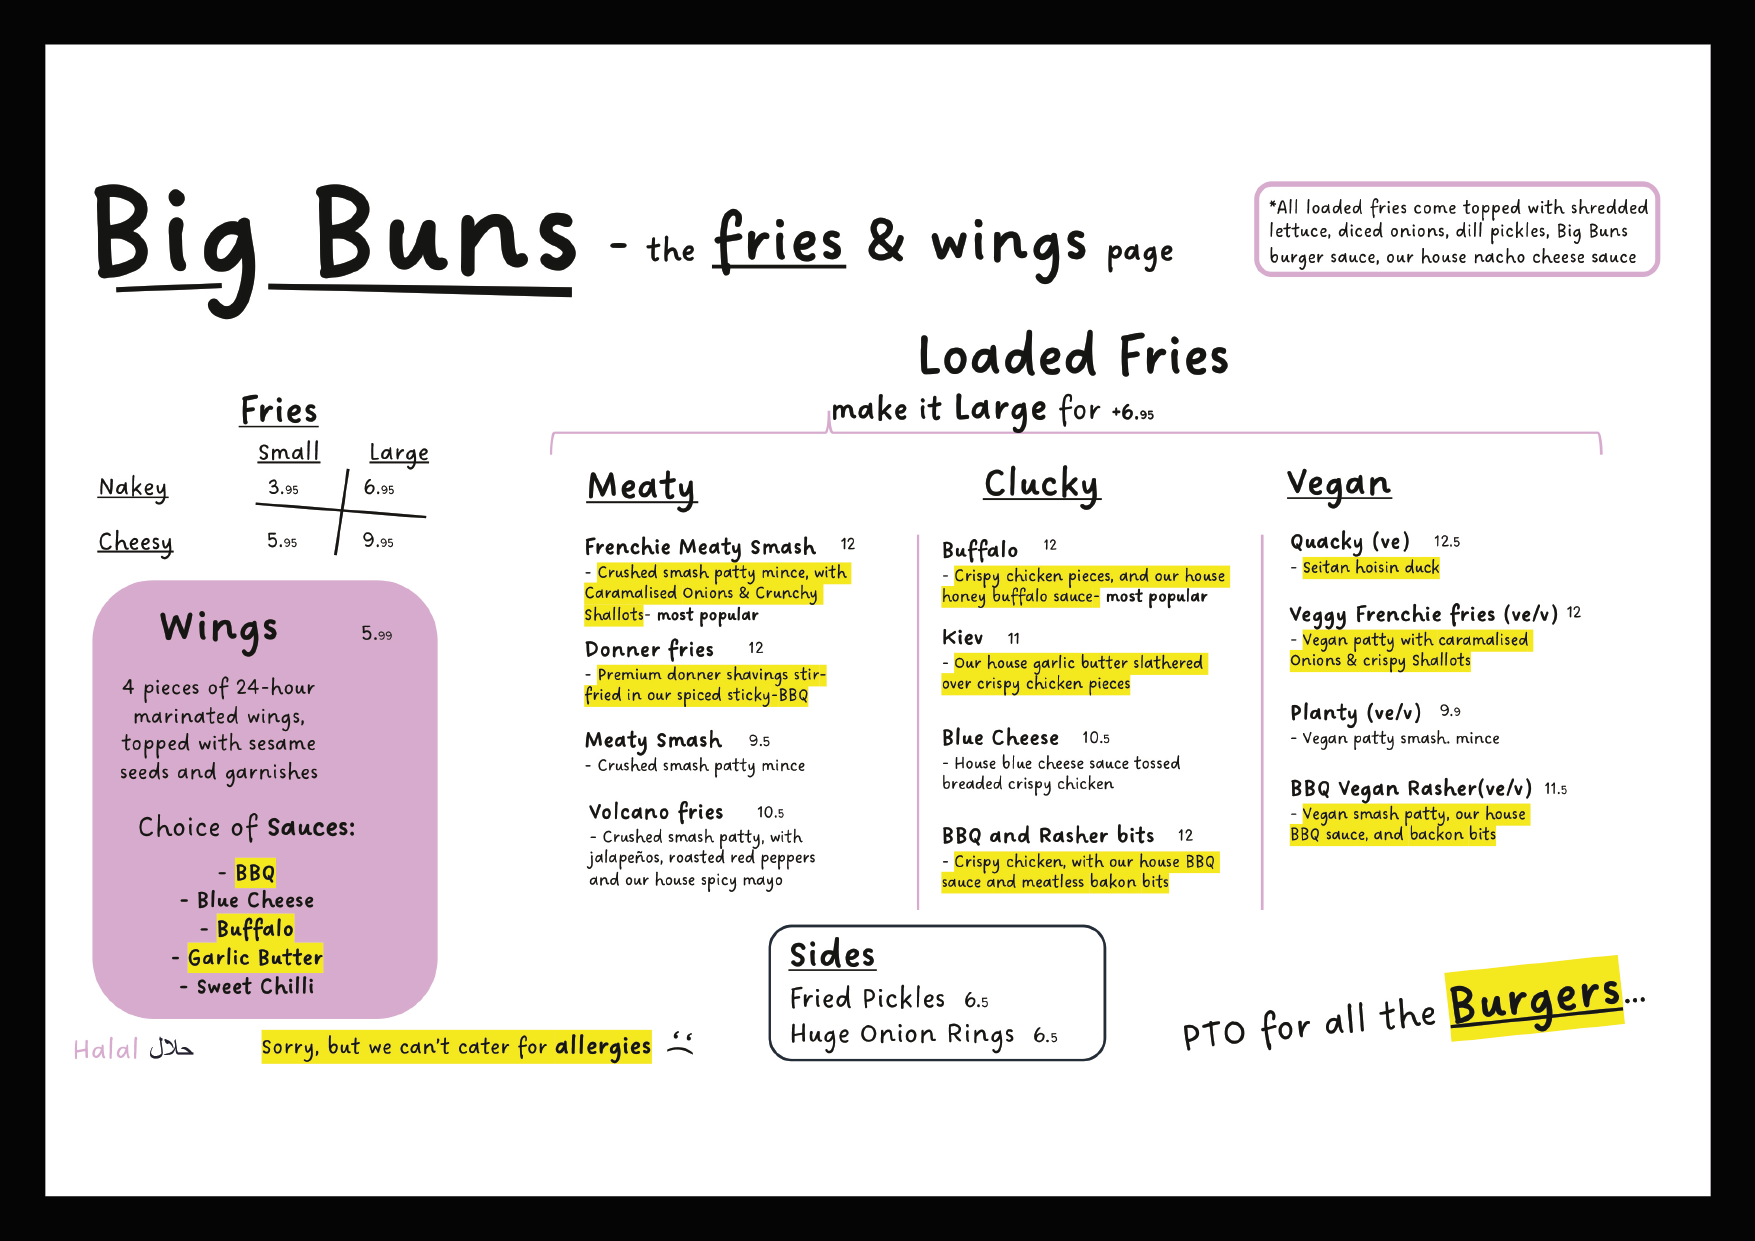 Big Buns - the fries & wings page
*All loaded fries come topped with shredded
lettuce, diced onions, dill pickles, Big Buns
burger sauce, our house nacho cheese sauce
Fries
Small Large
Nakey 3.95 6.95
Cheesy 5.95 9.95
Wings 5.99
4 pieces of 24-hour
marinated wings,
topped with sesame
seeds and garnishes
Choice of Sauces:
- BBQ
- Blue Cheese
- Buffalo
- Garlic Butter
- Sweet Chilli
Halal حلال
Sorry, but we can't cater for allergies
Loaded Fries
make it Large for +6.95
Meaty
Frenchie Meaty Smash 12
- Crushed smash patty mince, with
Caramalised Onions & Crunchy
Shallots- most popular
Donner fries 12
- Premium donner shavings stir-
fried in our spiced sticky-BBQ
Meaty Smash 9.5
- Crushed smash patty mince
Volcano fries 10.5
- Crushed smash patty, with
jalapeños, roasted red peppers
and our house spicy mayo
Clucky
Buffalo 12
- Crispy chicken pieces, and our house
honey buffalo sauce- most popular
Kiev 11
- Our house garlic butter slathered
over crispy chicken pieces
Blue Cheese 10.5
- House blue cheese sauce tossed
breaded crispy chicken
BBQ and Rasher bits 12
- Crispy chicken, with our house BBQ
sauce and meatless bakon bits
Vegan
Quacky (ve) 12.5
- Seitan hoisin duck
Veggy Frenchie fries (ve/v) 12
- Vegan patty with caramalised
Onions & crispy Shallots
Planty (ve/v) 9.9
- Vegan patty smash. mince
BBQ Vegan Rasher(ve/v) 11.5
- Vegan smash patty, our house
BBQ sauce, and backon bits
Sides
Fried Pickles 6.5
Huge Onion Rings 6.5
PTO for all the Burgers...